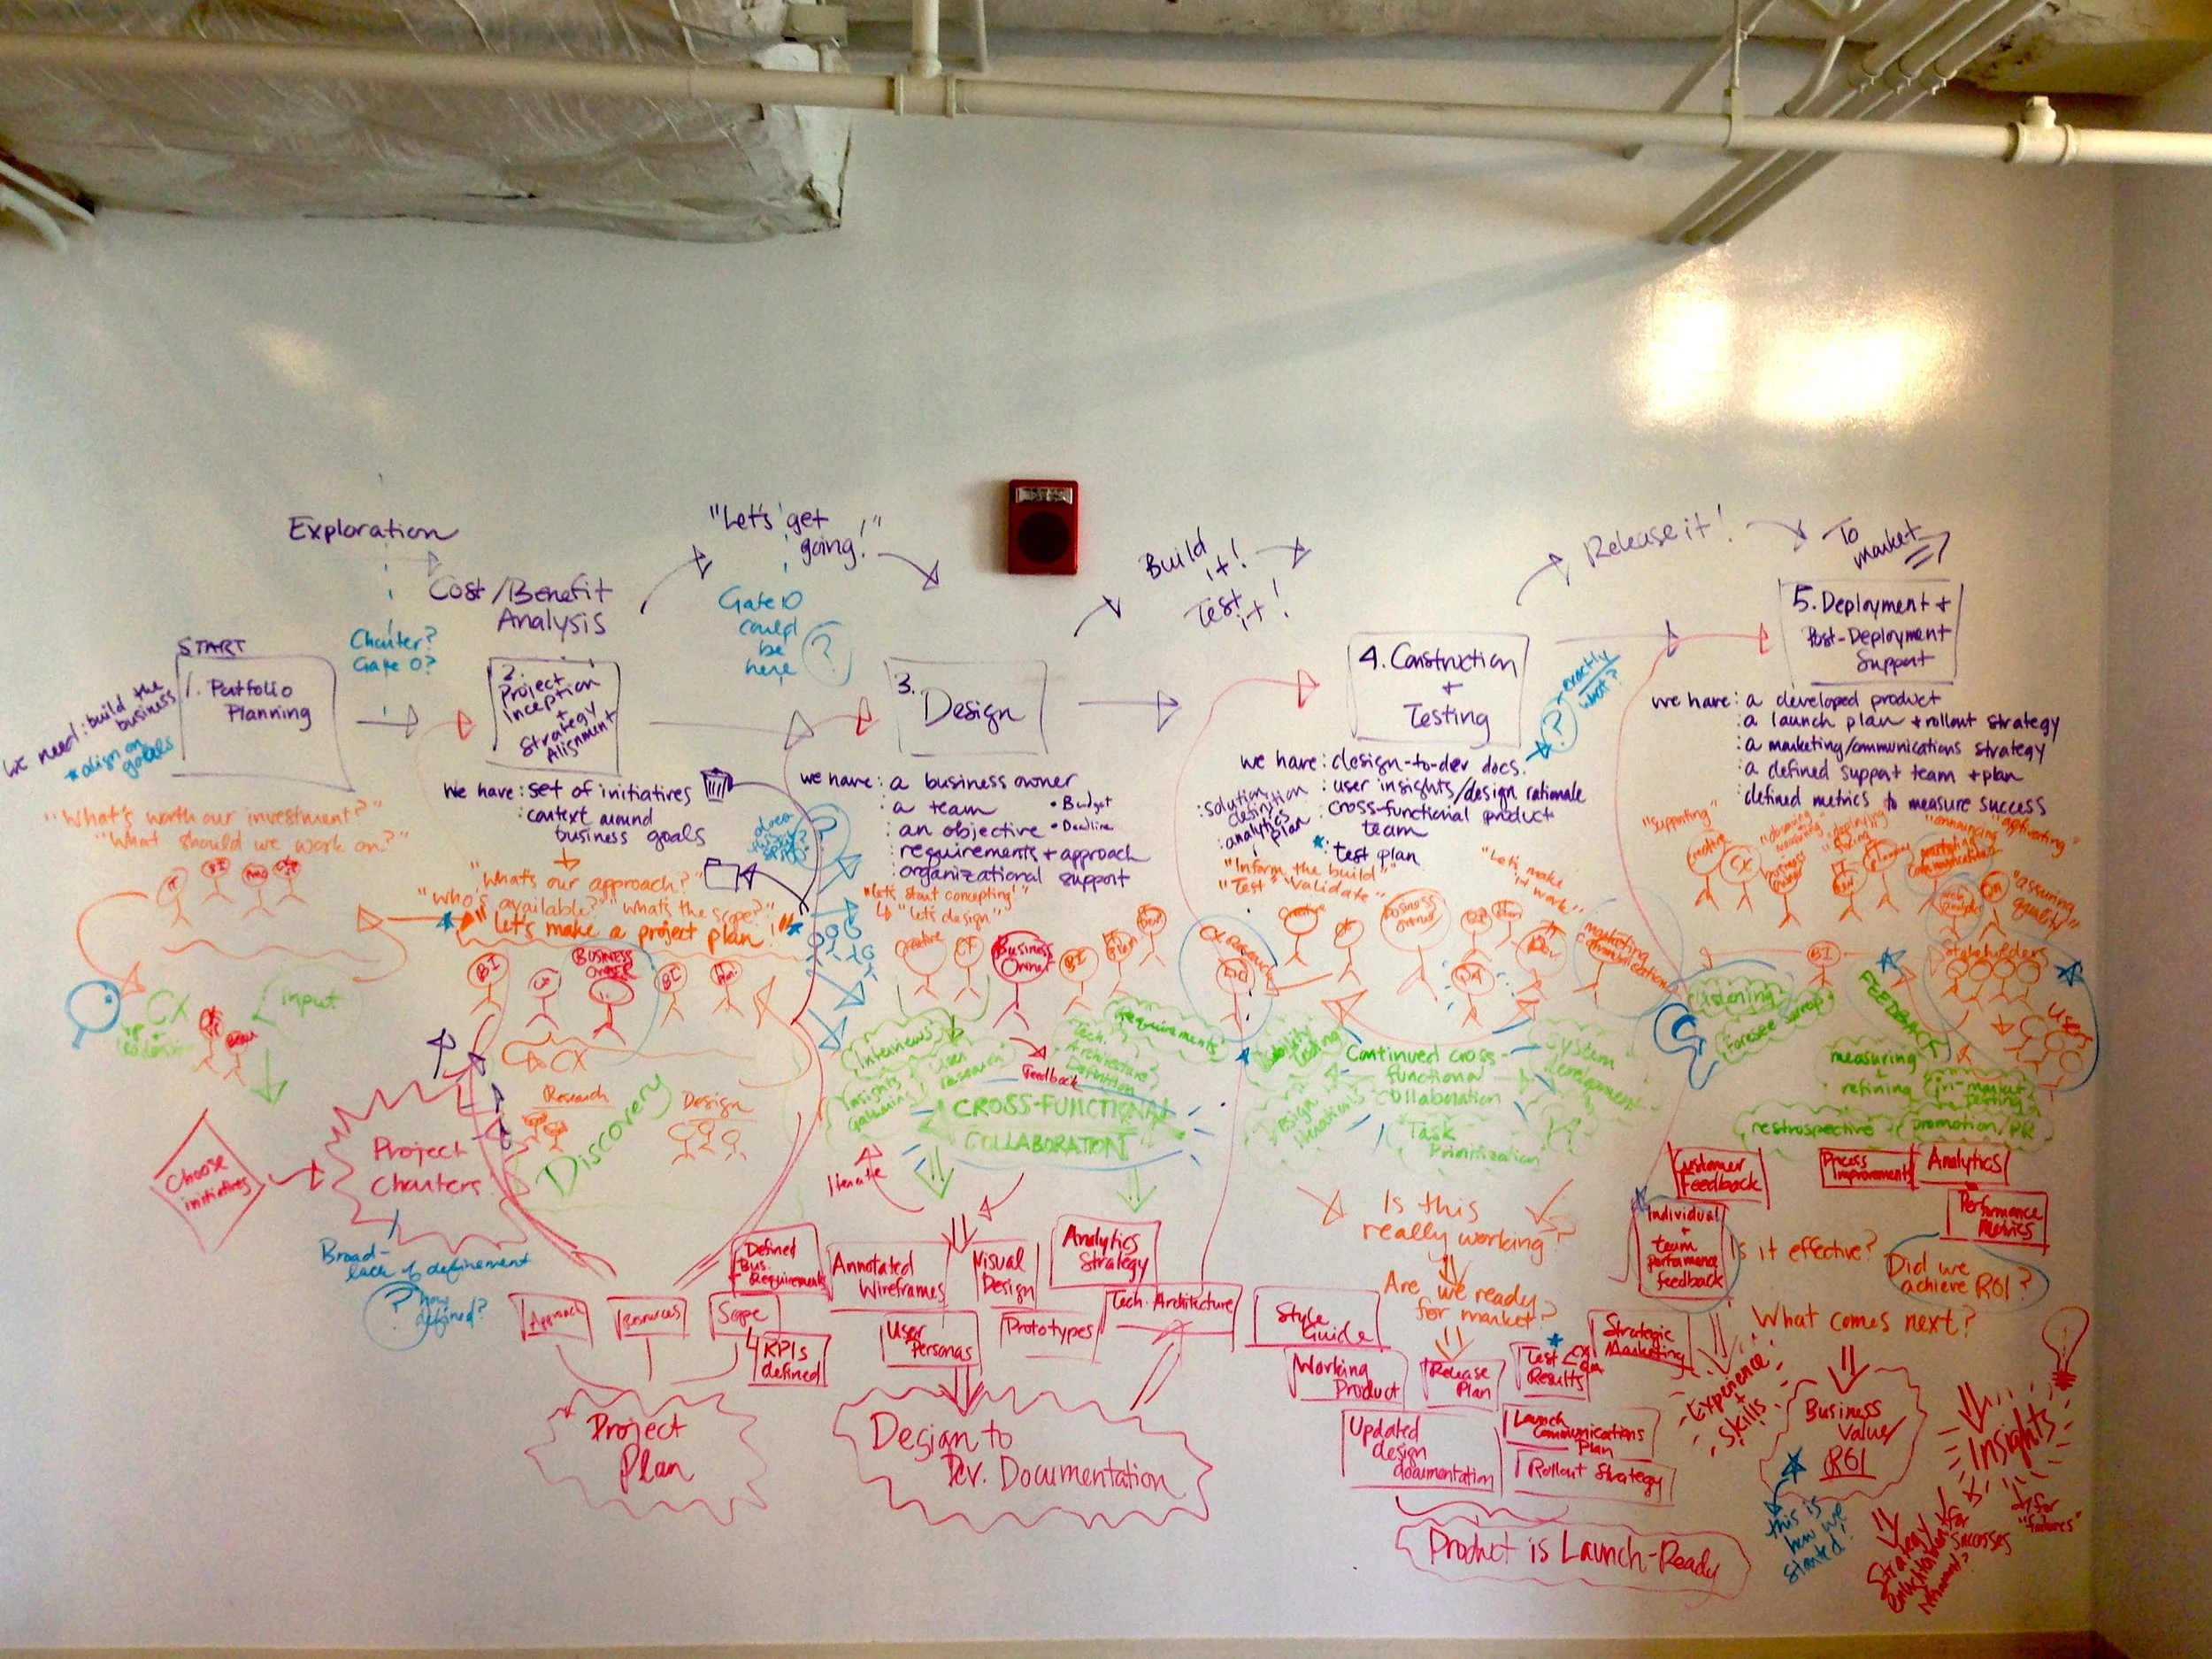 Exploration
"Let's get
going!"
Build
it!
Test
it!
Release it!
To
market
Cost/Benefit
Analysis
Charter?
Gate 0?
Gate 0
could
be
here
?
START
1. Portfolio
Planning
we need: build the
business
* align on
goals
2.
Project
Inception
+
Strategy
Alignment
3.
Design
4. Construction
+
Testing
exactly
what?
?
5. Deployment +
Post-Deployment
Support
"What's worth our investment?"
"What should we work on?"
we have: set of initiatives
: context around
business goals
"What's our approach?"
"Who's available?" "what's the scope?"
"Let's make a project plan!"
we have: a business owner
: a team
: an objective
: requirements + approach
: organizational support
• Budget
• Deadline
"let's start concepting!"
"let's design"
we have: design-to-dev docs.
: user insights/design rationale
: cross-functional product
team
: test plan
: solution
definition
: analytics
plan
"Inform the build"
"Test" "Validate"
"Let's make
it work"
we have: a developed product
: a launch plan + rollout strategy
: a marketing/communications strategy
: a defined support team + plan
: defined metrics to measure success
"supporting"
"announcing"
"activating"
"assuring
quality"
BI
CX
input
BI
BUSINESS
OWNER
BI
CX
Research
Design
Discovery
Creative
Business
Owner
BI
Dev
Interviews
User
research
Insights
Gathering
Feedback
Tech.
Architecture
Definition
Requirements
CROSS-FUNCTIONAL
COLLABORATION
Iterate
CX Research
Creative
Business
owner
QA
Dev
marketing
communications
Usability
Testing
Continued cross-
functional
collaboration
System
development
Design
Task
Prioritization
Creative
CX
Business
owner
marketing
communications
QA
BI
Stakeholders
Users
FEEDBACK
Listening
Foresee
measuring
+
refining
in-market
testing
restrospective
promotion/PR
Choose
initiatives
Project
Charters
Broad-
lack of definement
? how
defined?
Approach
Resources
Scope
Defined
Bus.
Requirements
KPIs
defined
Project
Plan
Annotated
Wireframes
Visual
Design
Analytics
Strategy
User
Personas
Prototypes
Tech. Architecture
Design to
Dev. Documentation
Is this
really working?
Are we ready
for market?
Style
Guide
Working
Product
Release
Plan
Test
Results
CX
QA
Updated
design
documentation
Launch
Communications
Plan
Rollout Strategy
Strategic
Marketing
Product is Launch-Ready
Customer
Feedback
Process
Improvement
Analytics
Performance
Metrics
individual
+
team
performance
feedback
Is it effective?
Did we
achieve ROI?
What comes next?
Experience
+
Skills
Business
Value/
ROI
this is
how we
started!
Insights
Strategy
for
successes
for
"failures"